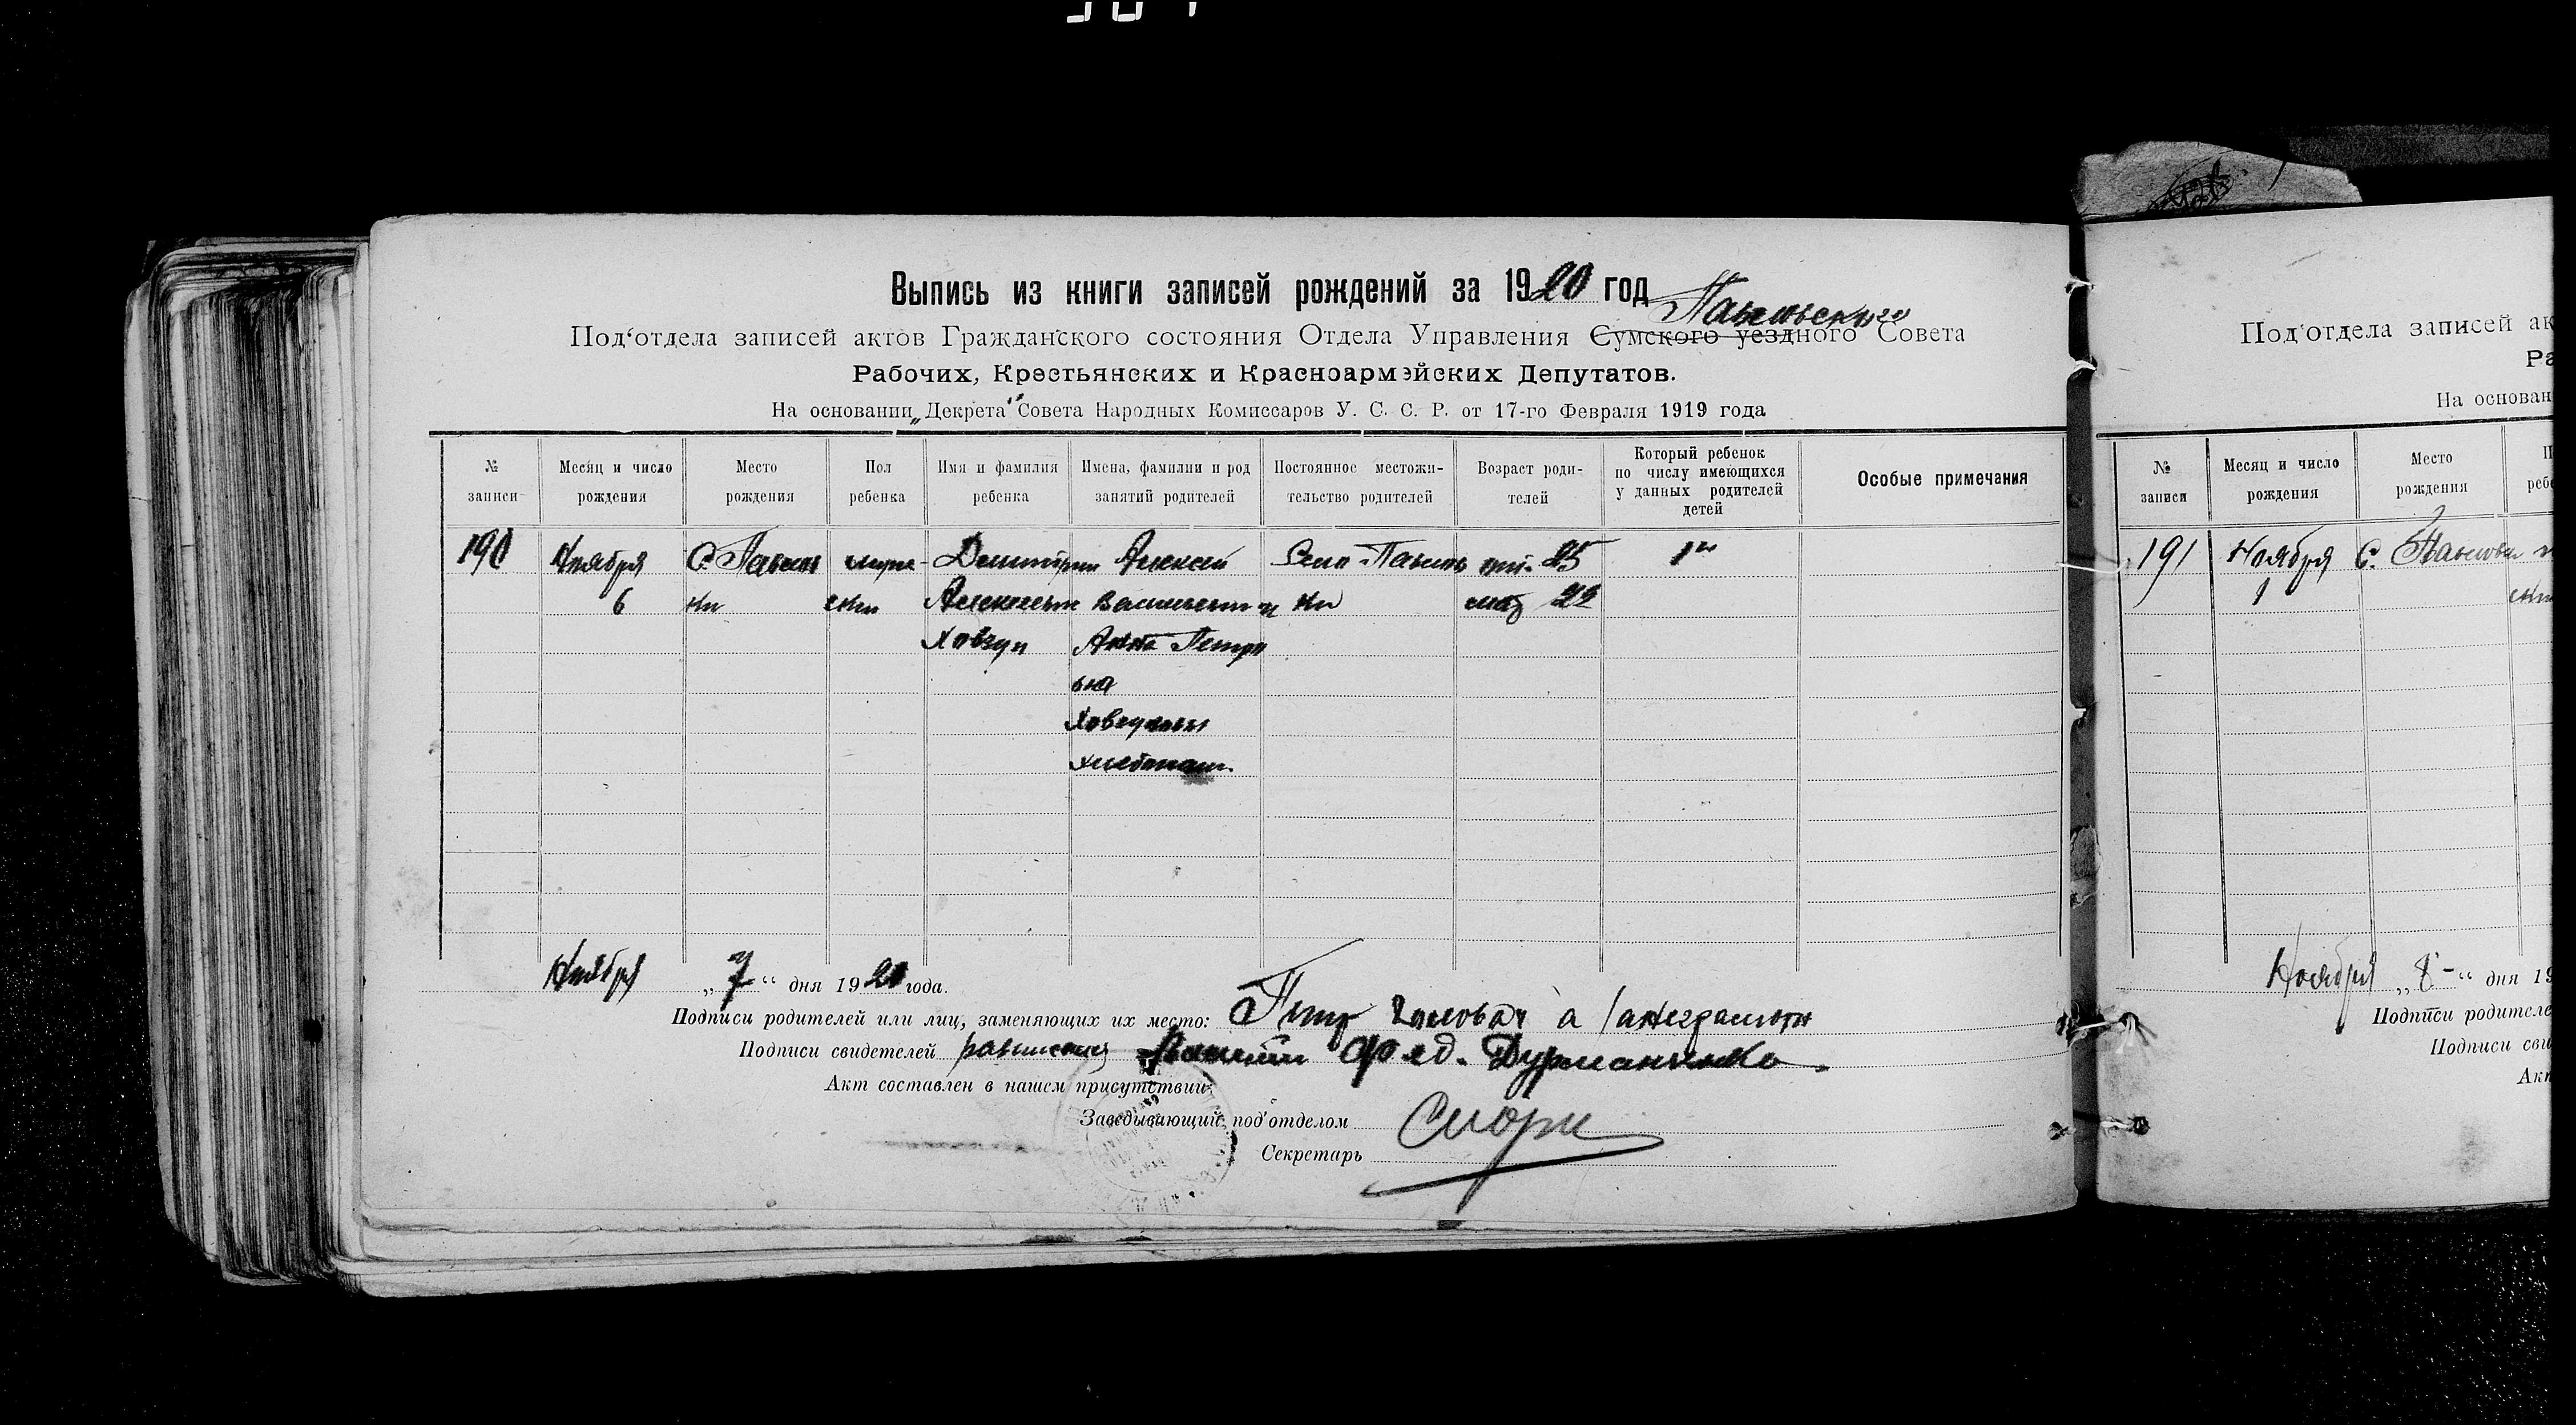 Выпись из книги записей рождений за 1920 год
Под‘отдела записей актов Гражданского состояния Отдела Управления Сумского уездного Совета
Рабочих, Крестьянских и Красноармейских Депутатов.
На основании „Декрета“ Совета Народных Комиссаров У. С. С. Р. от 17-го Февраля 1919 года
№ записи
Месяц и число рождения
Место рождения
Пол ребенка
Имя и фамилия ребенка
Имена, фамилии и род занятий родителей
Постоянное местожительство родителей
Возраст родителей
Который ребенок по числу имеющихся у данных родителей детей
Особые примечания
190 Ноября С. Павлов муж- Димитрии Алексей Село Павлов 25 1й
6 ки ский Алексеев Васильевич ки 22
Ховзун Анна Петро
вна
Ховзуновы
Хлебопаш.
Ноября „ 7 “ дня 1920 года.
Подписи родителей или лиц, заменяющих их место: Петр
Подписи свидетелей Фед. Дурманенко.
Акт составлен в нашем присутствии:
Заведывающий под‘отделом
Секретарь
Под‘отдела записей ак
Ра
На основан
№ записи
Месяц и число рождения
Место рождения
П
ребе
191 Ноября С.
1
Ноября „ 8 - “ дня 19
Подписи родителе
Подписи сви
Акт